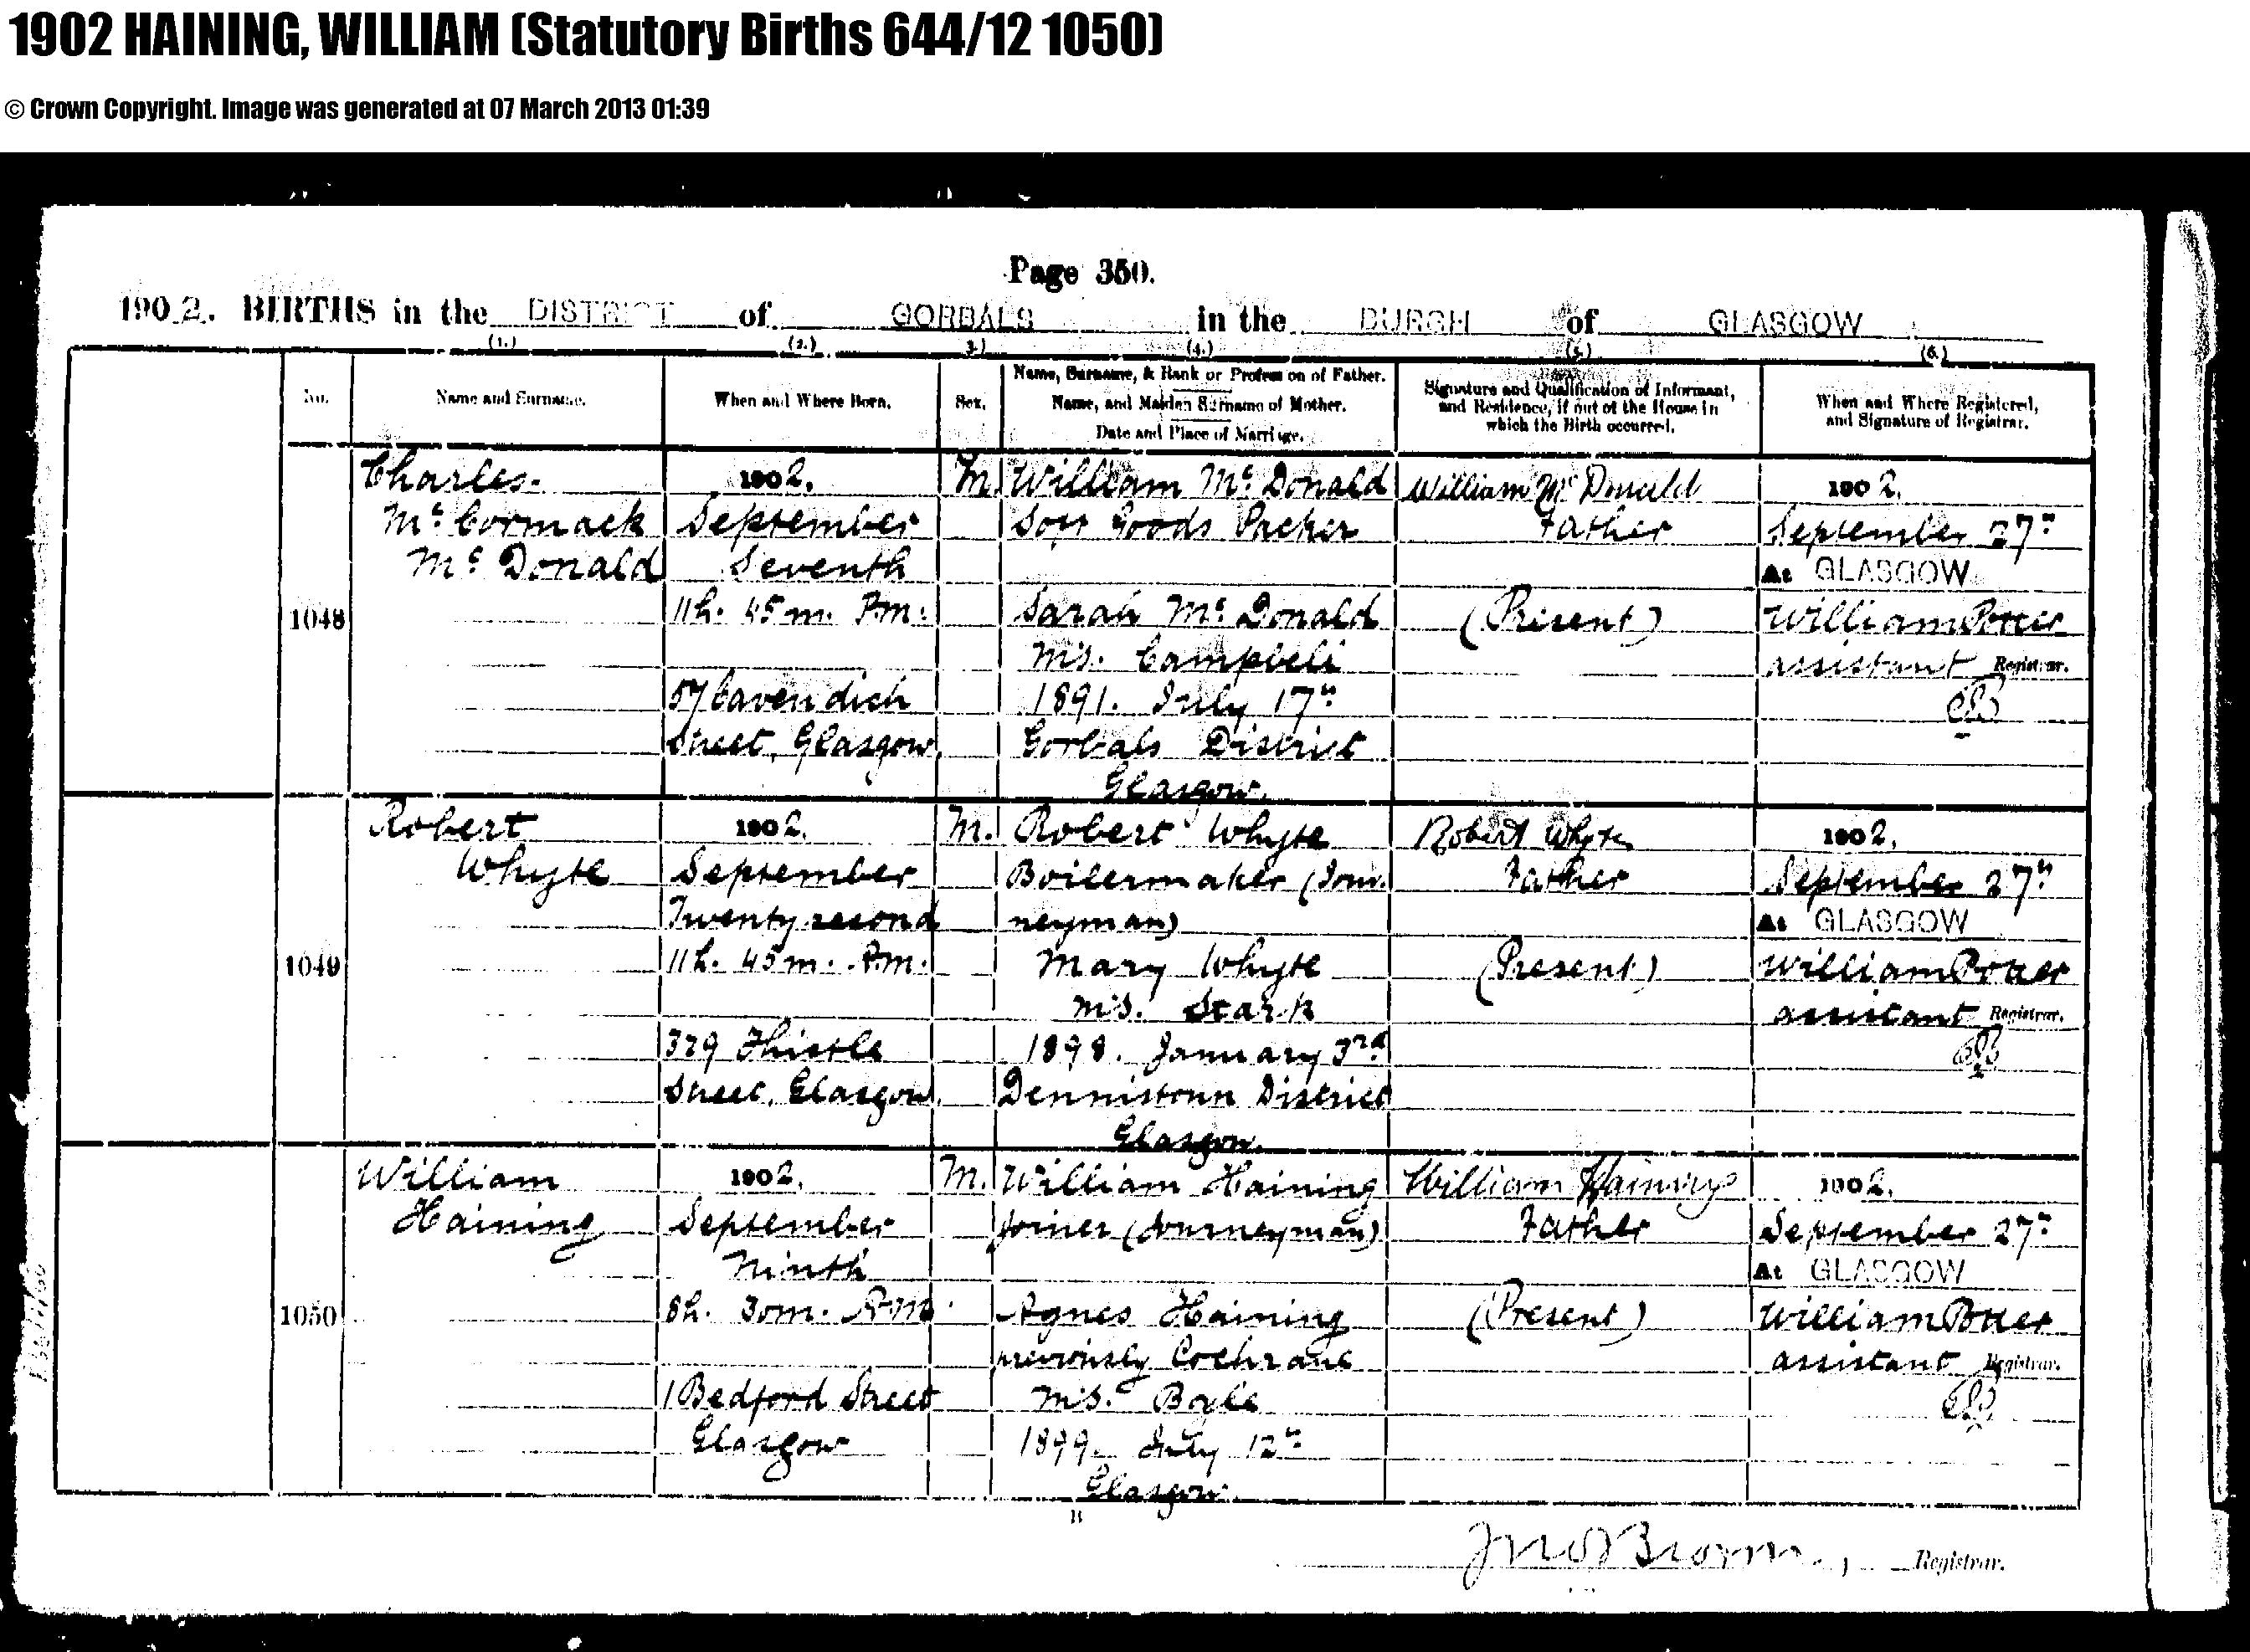 1902 HAINING, WILLIAM (Statutory Births 644/12 1050)
© Crown Copyright. Image was generated at 07 March 2013 01:39
Page 350.
1902. BIRTHS in the DISTRICT of GORBALS in the BURGH of GLASGOW
(1.) (2.) 3.) (4.) (5.) (6.)
No.
Name and Surname.
When and Where Born.
Sex.
Name, Surname, & Rank or Profession of Father.
Name, and Maiden Surname of Mother.
Date and Place of Marriage.
Signature and Qualification of Informant,
and Residence, if out of the House in
which the Birth occurred.
When and Where Registered,
and Signature of Registrar.
1048
Charles
McCormack
McDonald
1902.
September
Seventh
11h. 45m. P.M.
57 Cavendish
Street, Glasgow
M.
William McDonald
Soft Goods Packer
Sarah McDonald
M.S. Campbell
1891. July 17th
Gorbals District
Glasgow.
William McDonald
Father
(Present)
1902.
September 27th
At GLASGOW
William Potter
assistant Registrar.
1049
Robert
Whyte
1902.
September
Twenty second
11h. 45m. P.M.
329 Thistle
Street, Glasgow.
M.
Robert Whyte
Boilermaker (Jour-
neyman)
Mary Whyte
M.S. Stark
1898. January 3rd
Dennistoun District
Glasgow.
Robert Whyte
Father
(Present)
1902.
September 27th
At GLASGOW
William Potter
assistant Registrar.
1050
William
Haining
1902.
September
Ninth
8h. 30m.
1 Bedford Street
Glasgow
M.
William Haining
Joiner (Journeyman)
Agnes Haining
previously Cochrane
M.S. Boyle
1899. July 12th
Glasgow.
William Haining
Father
(Present)
1902.
September 27th
At GLASGOW
William Potter
assistant Registrar.
Brown Registrar.